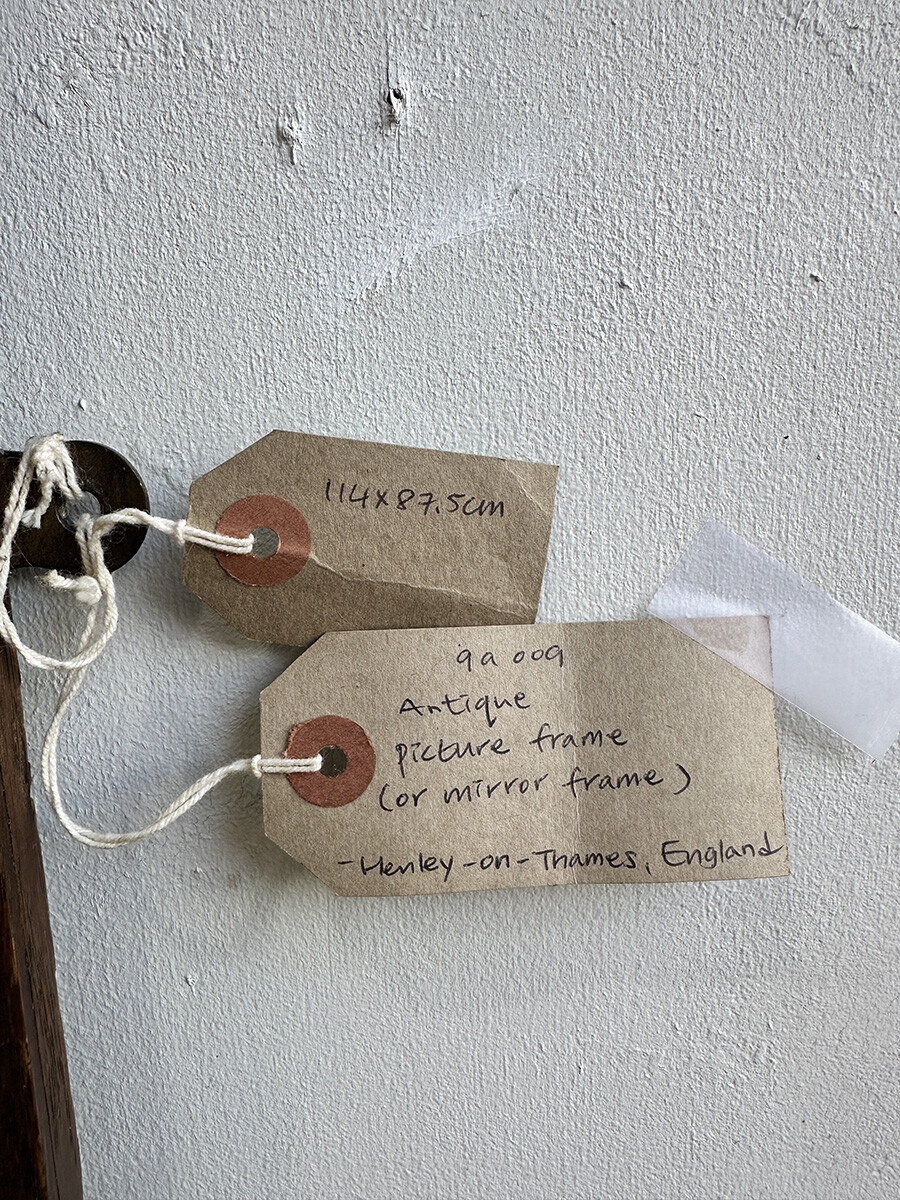 114x87.5cm
9a 009
Antique
picture frame
(or mirror frame)
-Henley-on-Thames, England